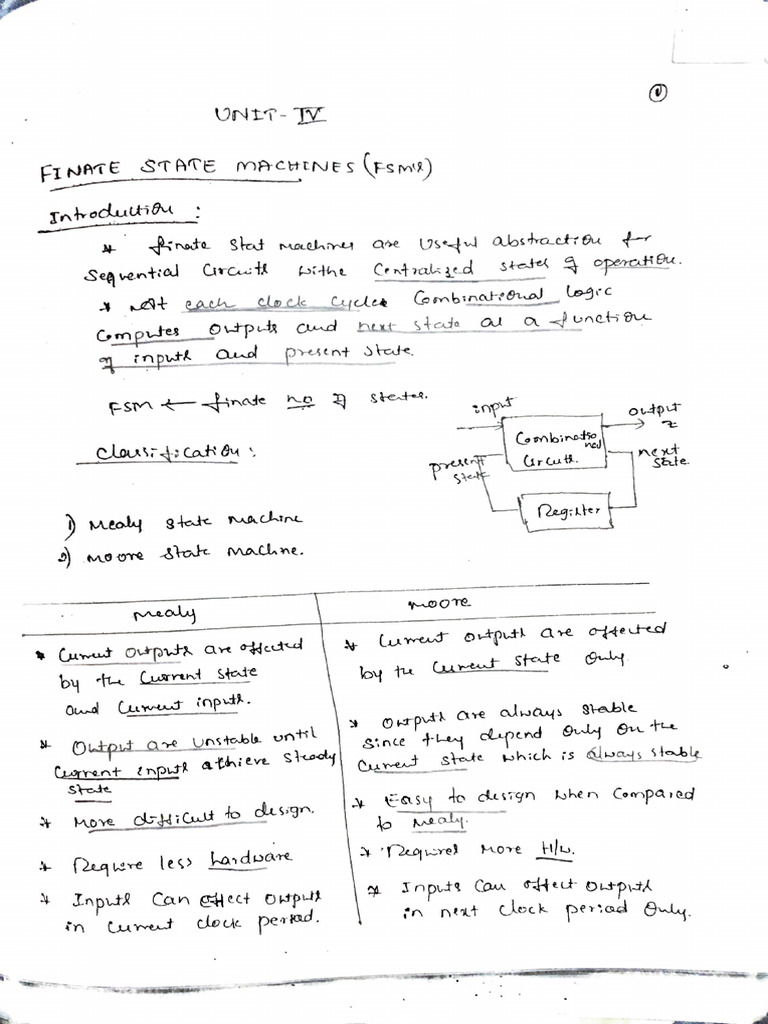 ①
UNIT-IV
FINATE STATE MACHINES (FSM's)
Introduction :
* finate stat machines are useful abstraction for
sequential circuits withe centralized states of operation.
* each clock cycle combinational logic
computes outputs and next state as a function
of inputs and present state.
FSM ← finate no of states.
Classification :
input
output
z
Combinational
circuits.
present
state
next
state
Register
1) Mealy state machine
2) Moore state machine.
Mealy
Moore
* Current outputs are affected
by the current state
and current inputs.
* Current outputs are affected
by the current state only.
* Output are unstable until
current inputs achieve steady
state
* Outputs are always stable
since they depend only on the
current state which is always stable
* More difficult to design.
* Easy to design when compared
to mealy.
* Require less hardware
* Requires more H/w.
* Inputs can effect outputs
in current clock period.
* Inputs can effect outputs
in next clock period only.